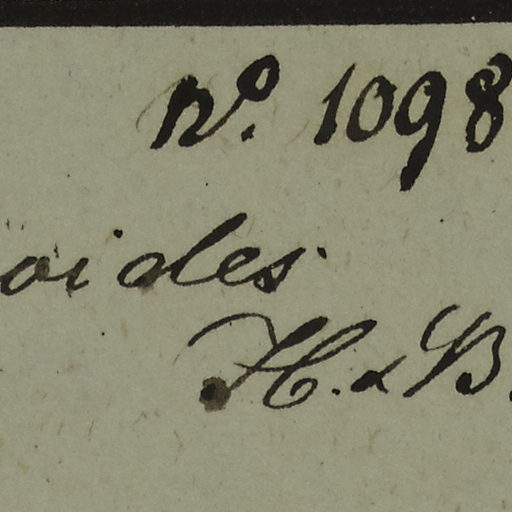 No. 1098
oides
H. & B.